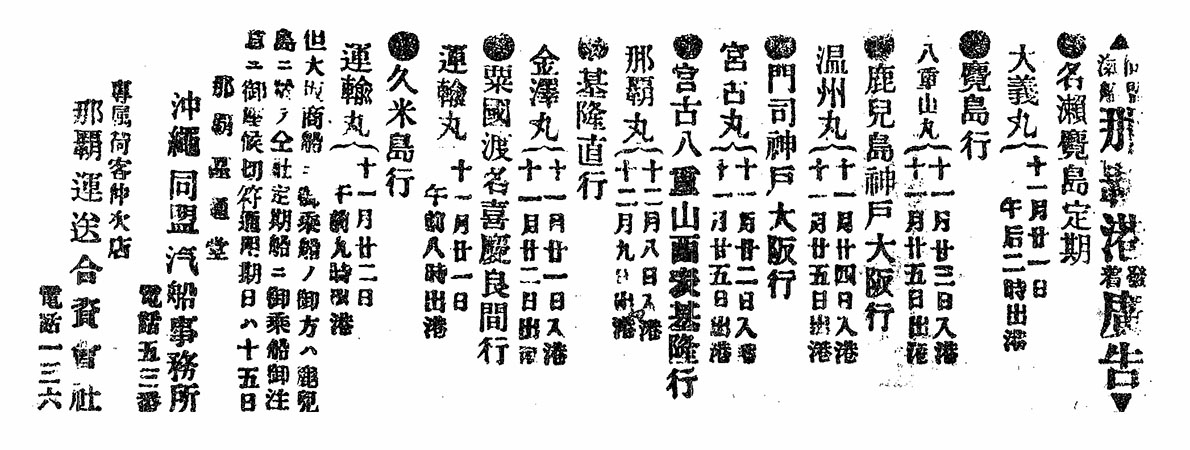 ▲沖縄同盟汽船那覇港発着広告▼
●名瀬覺島定期
大義丸 十一月廿一日
午后二時出港
●覺島行
八重山丸 十一月廿三日入港
十一月廿五日出港
●鹿兒島神戸大阪行
温州丸 十一月廿四日入港
十一月廿五日出港
●門司神戸大阪行
宮古丸 十一月廿二日入港
十一月廿五日出港
●宮古八重山西表基隆行
那覇丸 十二月八日入港
十二月九日出港
●基隆直行
金澤丸 十一月廿一日入港
十一月廿二日出港
●粟國渡名喜慶良間行
運輸丸 十一月廿一日
午前八時出港
●久米島行
運輸丸 十一月廿二日
午前九時出港
但大坂商船ニ御乘船ノ御方ハ鹿兒
島ニ於テ仝社定期船ニ御乘船御注
意ニ御座候切符通用期日ハ十五日
那覇 通堂
沖繩同盟汽船事務所
電話五三番
專属荷客仲次店
那覇運送合資會社
電話一三六